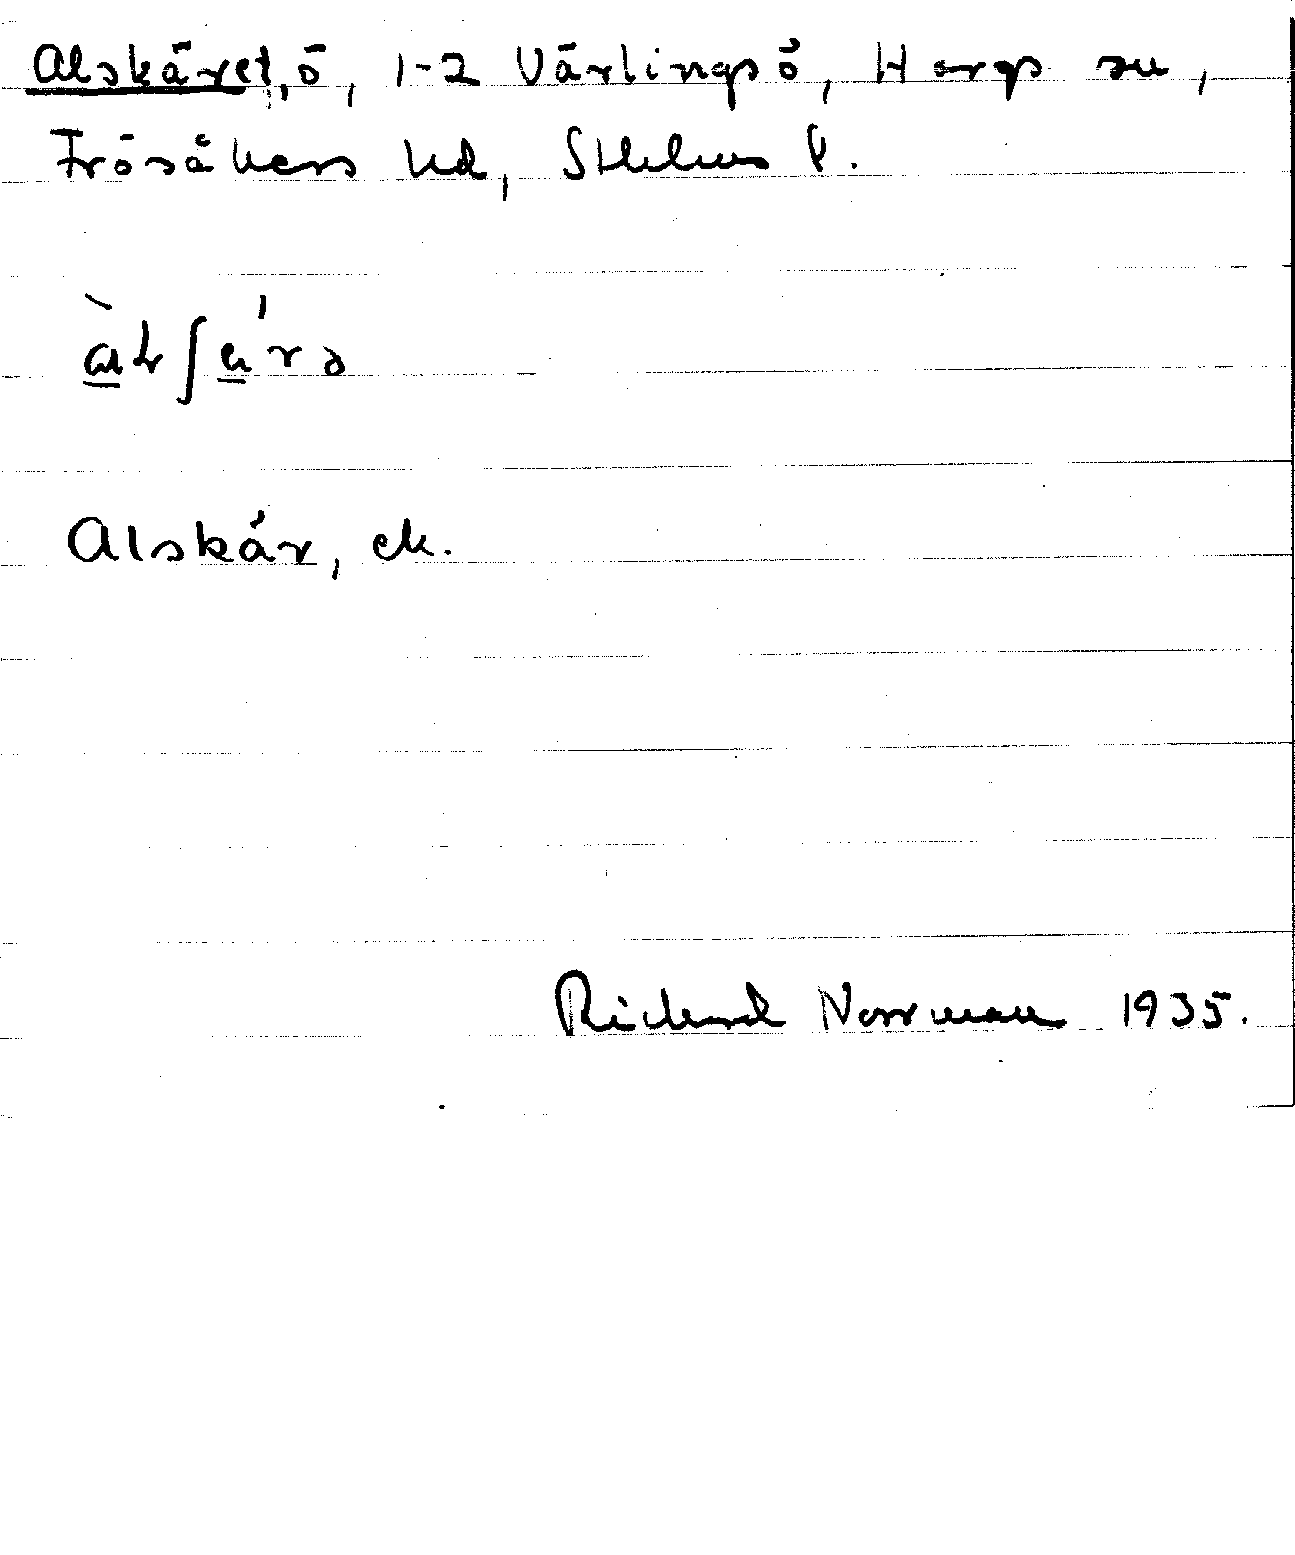 Alskäret, ö, 1-2 Värlingsö, Hargs sn,
Frösåkers hd, Sthlms l.
Alskär, ek.
Richard Norrman 1935.